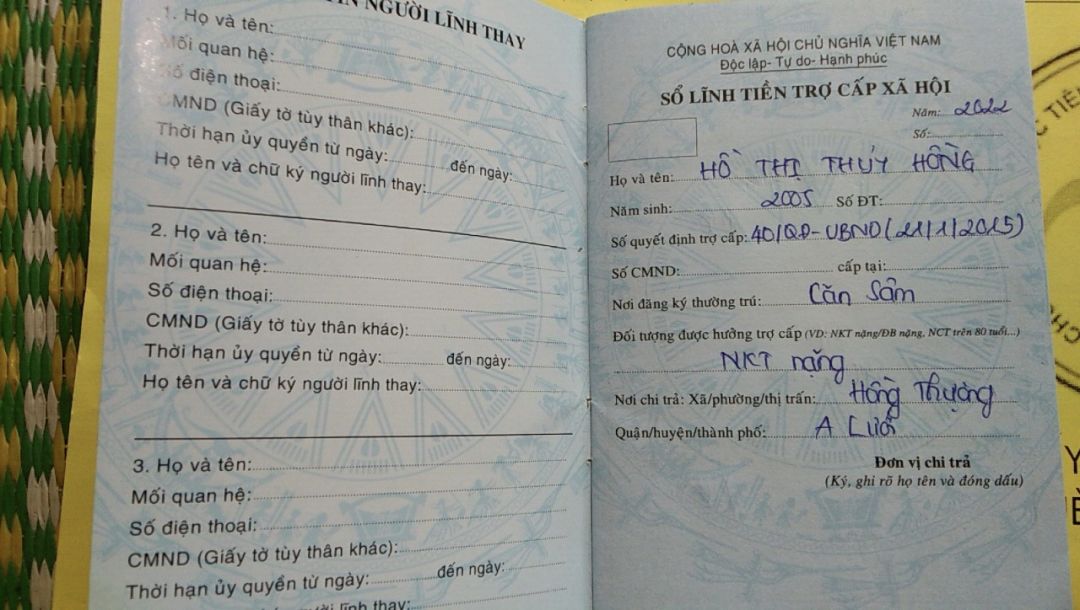 NGƯỜI LĨNH THAY
1. Họ và tên:
Mối quan hệ:
Số điện thoại:
CMND (Giấy tờ tùy thân khác):
Thời hạn ủy quyền từ ngày: đến ngày:
Họ tên và chữ ký người lĩnh thay:
2. Họ và tên:
Mối quan hệ:
Số điện thoại:
CMND (Giấy tờ tùy thân khác):
Thời hạn ủy quyền từ ngày: đến ngày:
Họ tên và chữ ký người lĩnh thay:
3. Họ và tên:
Mối quan hệ:
Số điện thoại:
CMND (Giấy tờ tùy thân khác):
Thời hạn ủy quyền từ ngày: đến ngày:
người lĩnh thay:
CỘNG HOÀ XÃ HỘI CHỦ NGHĨA VIỆT NAM
Độc lập- Tự do- Hạnh phúc
SỔ LĨNH TIỀN TRỢ CẤP XÃ HỘI
Năm: 2022
Số:
Họ và tên: HỒ THỊ THUỶ HỒNG
Năm sinh: 2005 Số ĐT:
Số quyết định trợ cấp: 40/QĐ-UBND(21/1/2015)
Số CMND: cấp tại:
Nơi đăng ký thường trú: Căn Sâm
Đối tượng được hưởng trợ cấp (VD: NKT nặng/ĐB nặng, NCT trên 80 tuổi...)
NKT nặng
Nơi chi trả: Xã/phường/thị trấn: Hồng Thượng
Quận/huyện/thành phố: A Lưới
Đơn vị chi trả
(Ký, ghi rõ họ tên và đóng dấu)